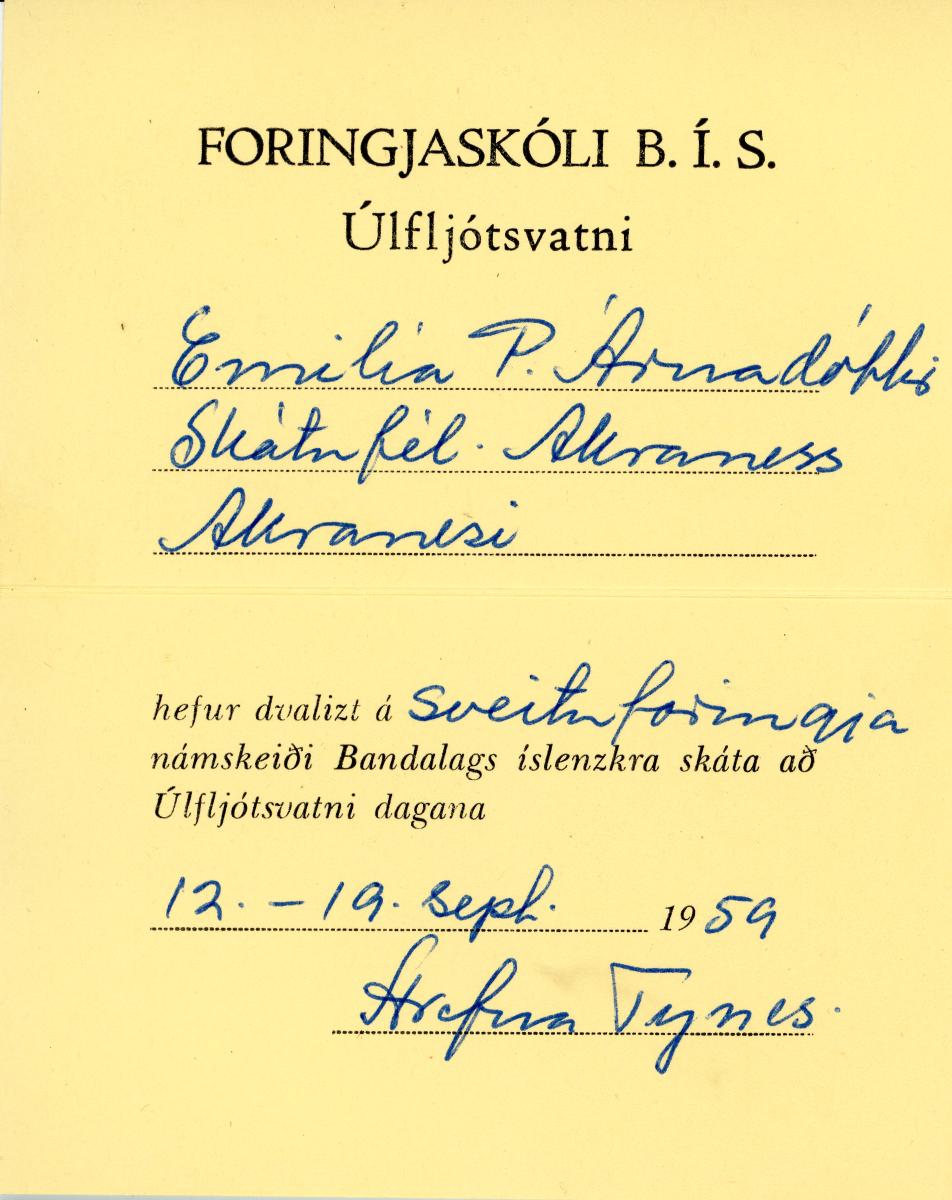 FORINGJASKÓLI B. Í. S.
Úlfljótsvatni
Emilía P. Árnadóttir
Skátafél. Akraness
Akranesi
hefur dvalizt á sveitaforingja
námskeiði Bandalags íslenzkra skáta að
Úlfljótsvatni dagana
12. – 19. sept. 1959
Hrefna Tynes.